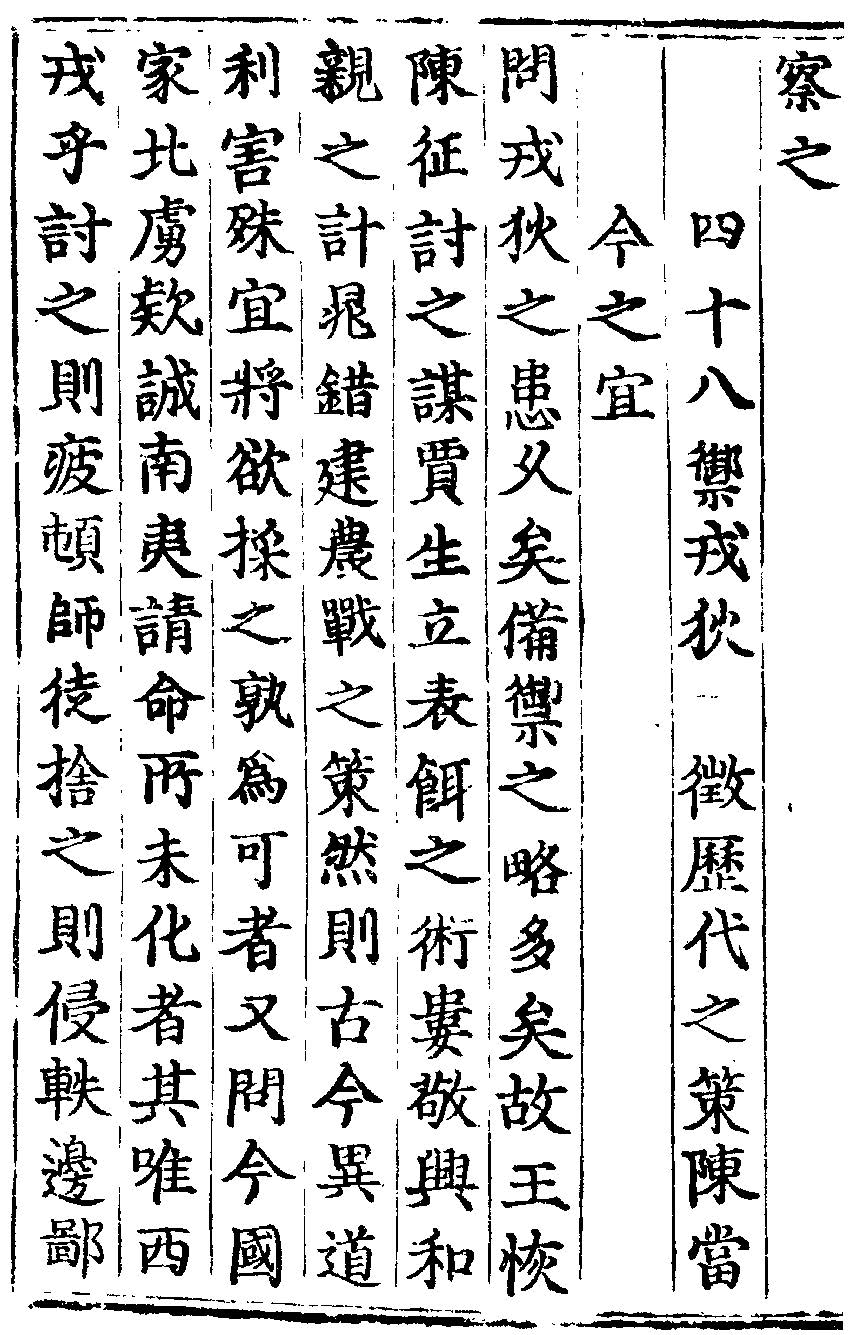 察之
四十八禦戎狄　徵歷代之策陳當
今之宜
問戎狄之患乆矣備禦之略多矣故王恢
陳征討之謀賈生立表餌之術婁敬興和
親之計晁錯建農戰之策然則古今異道
利害殊宜將欲採之孰爲可者又問今國
家北虜欵誠南夷請命所未化者其唯西
戎乎討之則疲頓師徒捨之則侵軼邊鄙